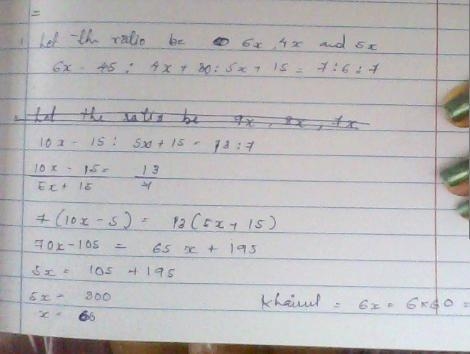 =
Let the ratio be 6x, 4x and 5x
6x - 45 : 4x + 30 : 5x + 15 = 7:6:7
Let the ratio be 7x, 8x, 7x
10x - 15 : 5x + 15 = 13:7
10x - 15 = 13
5x + 15 7
7(10x - 5) = 13(5x + 15)
70x - 105 = 65x + 195
5x = 105 + 195
5x = 300
x = 60
Khairul = 6x = 6x60 =